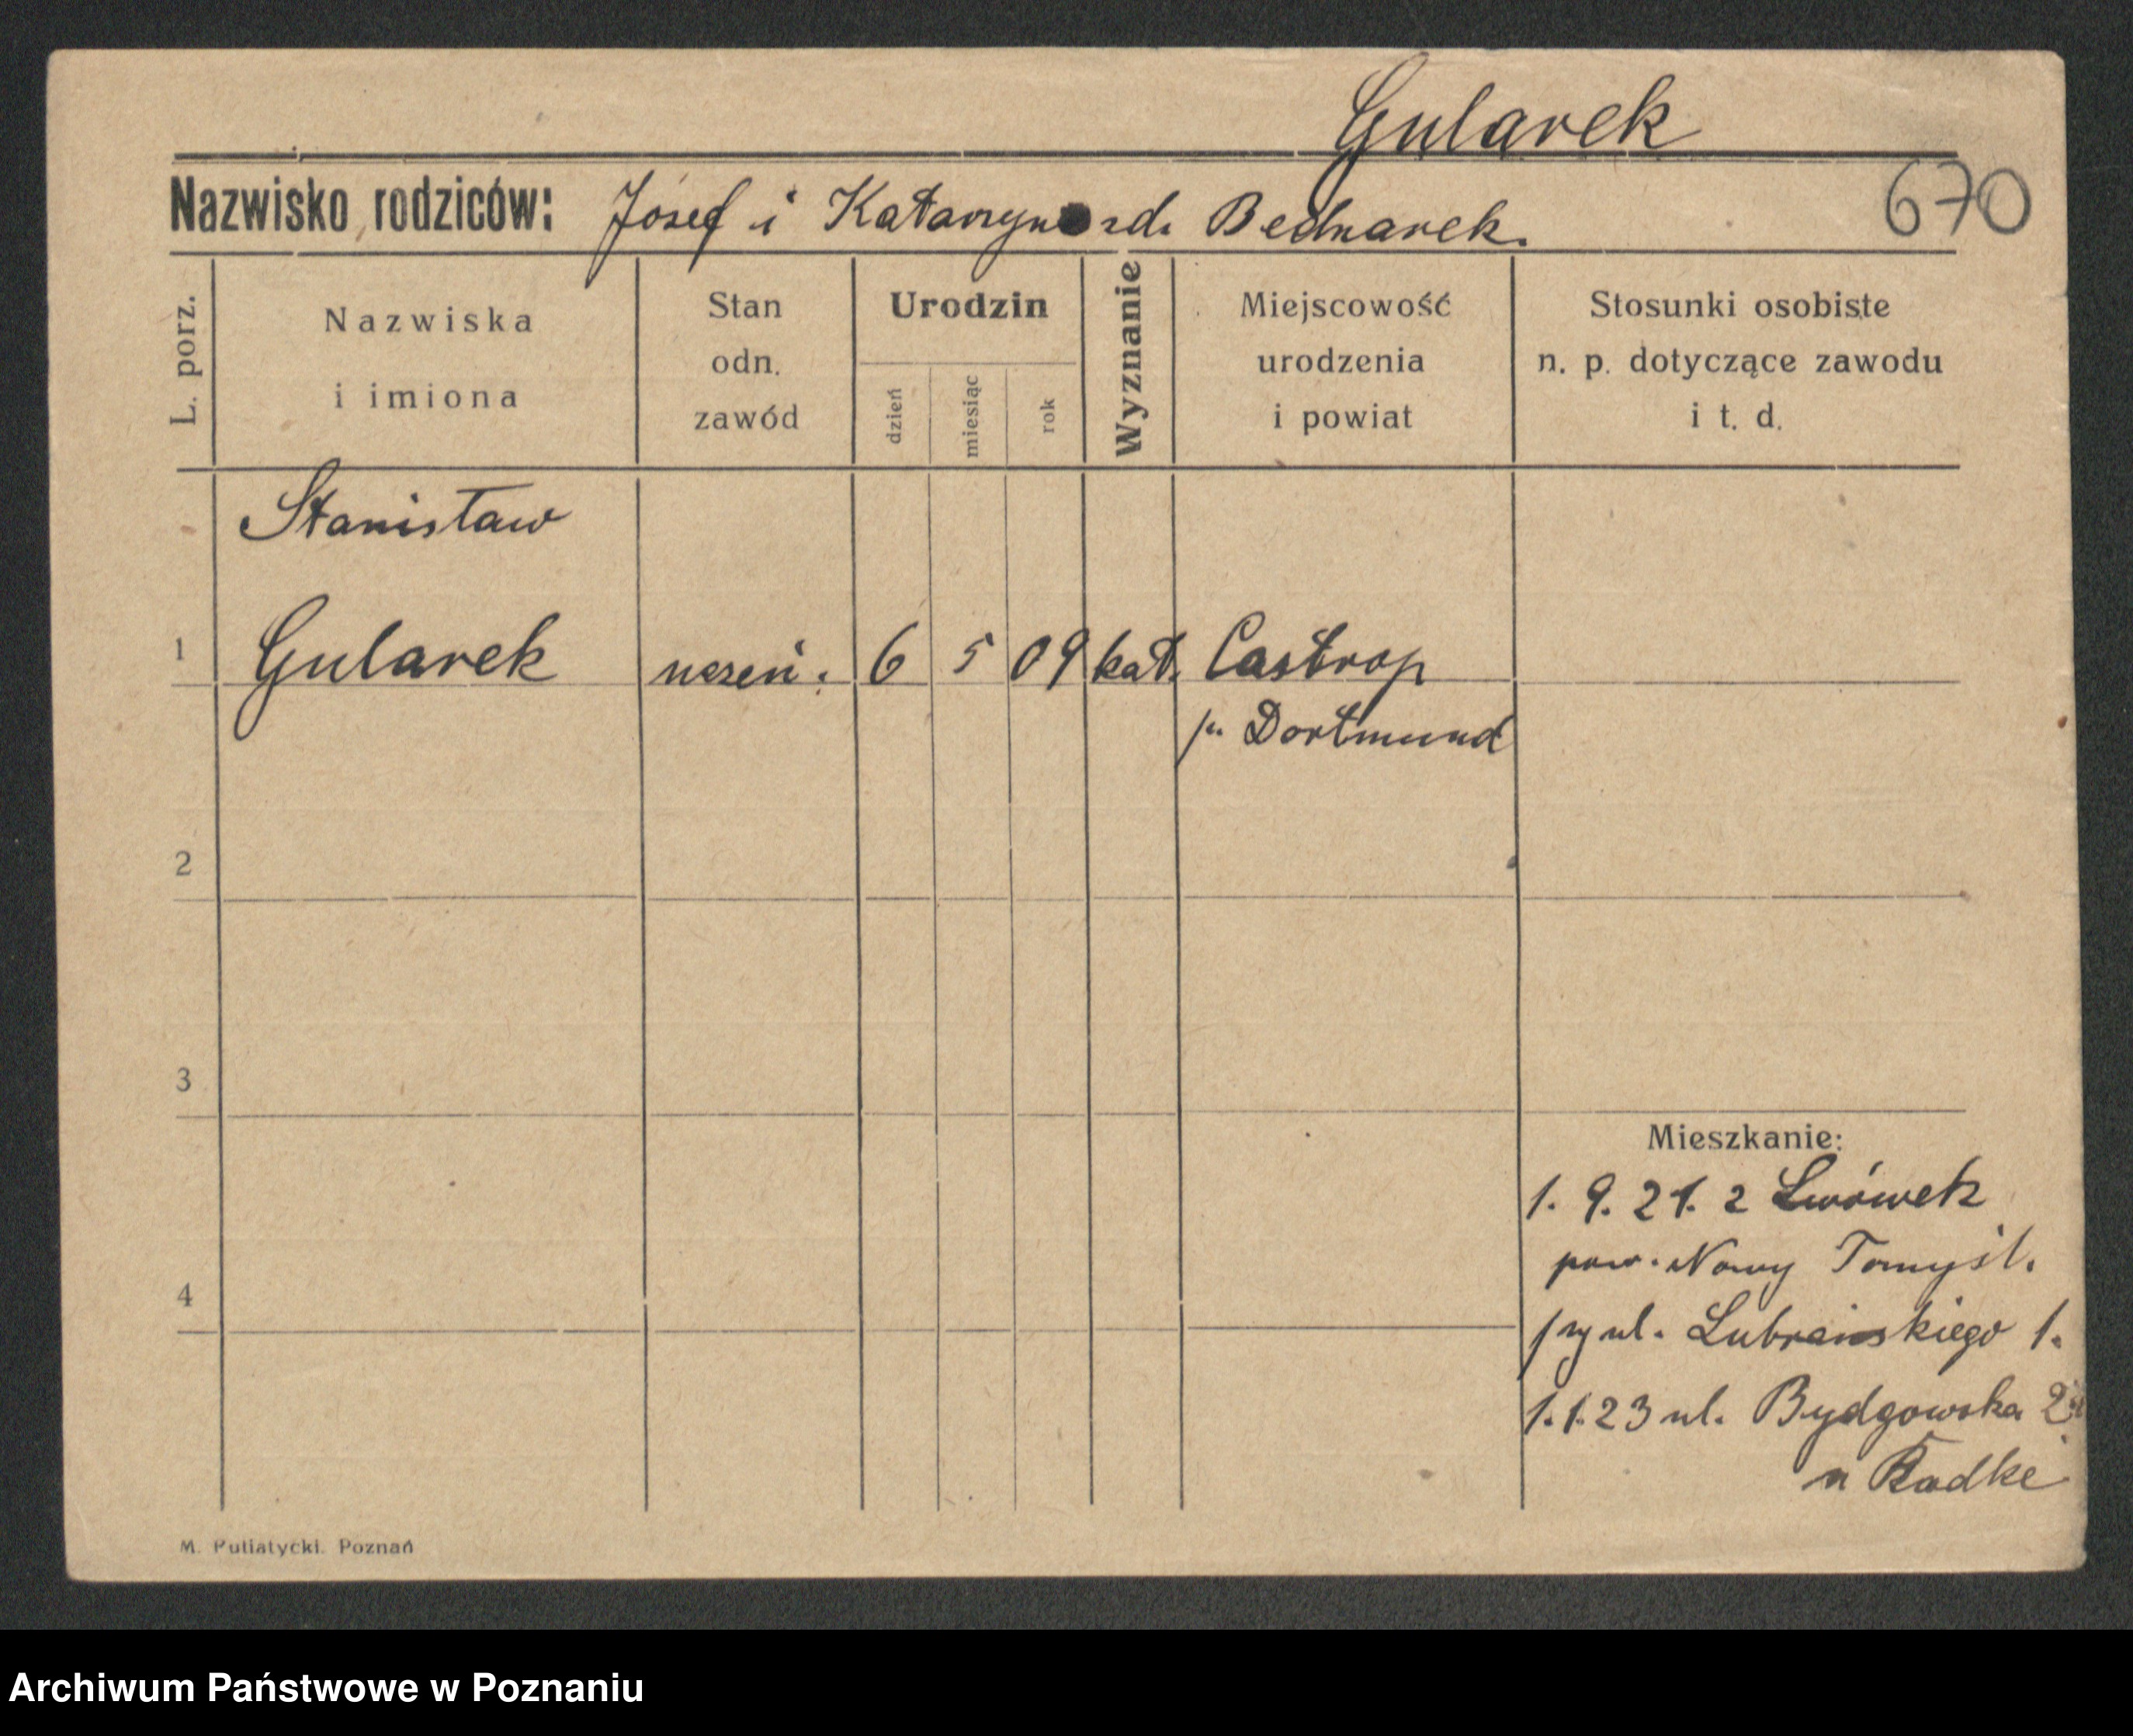 Gularek
Nazwisko rodziców: Józef i Katarzyna zd. Bednarek.
670
L. porz.
Nazwiska
i imiona
Stan
odn.
zawód
Urodzin
dzień
miesiąc
rok
Wyznanie
Miejscowość
urodzenia
i powiat
Stosunki osobiste
n. p. dotyczące zawodu
i t. d.
Stanisław
1 Gularek uczeń. 6 5 09 kat. Castrop
p. Dortmund
2
3
Mieszkanie:
1. 9. 21. z Lwówek
pow. Nowy Tomyśl.
4
przy ul. Lubrańskiego 1.
1.1.23 ul. Bydgowska
u Radke
M. Putiatycki. Poznań
Archiwum Państwowe w Poznaniu